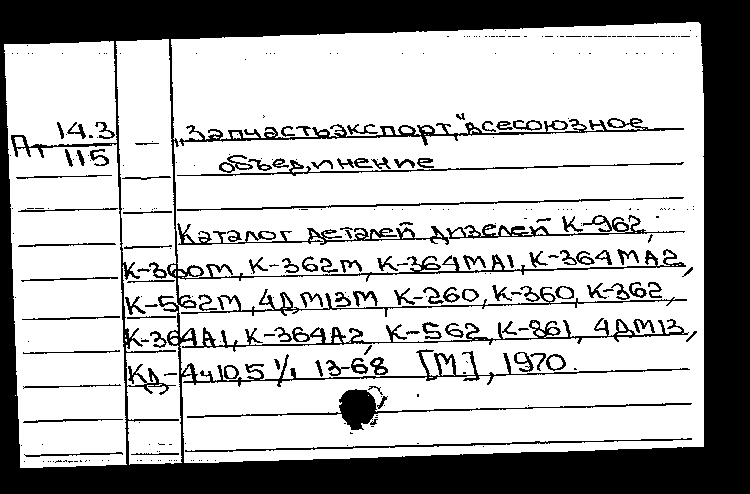 Пт 14.3/115 — „Запчастьэкспорт," всесоюзное
объединение
Каталог деталей дизелей К-962,
К-360М, К-362М, К-364МА1, К-364МА2,
К-562М, 4ДМ13М, К-260, К-360, К-362,
К-364А1, К-364А2, К-562, К-861, 4ДМ13,
КД-4ч10,5 1/1 13-68 [М.], 1970.